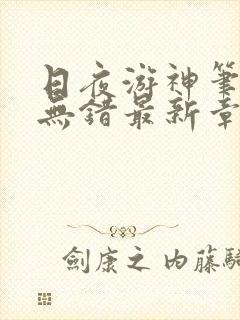 日夜游神筆
無錯最新章
劍康之内藤騎